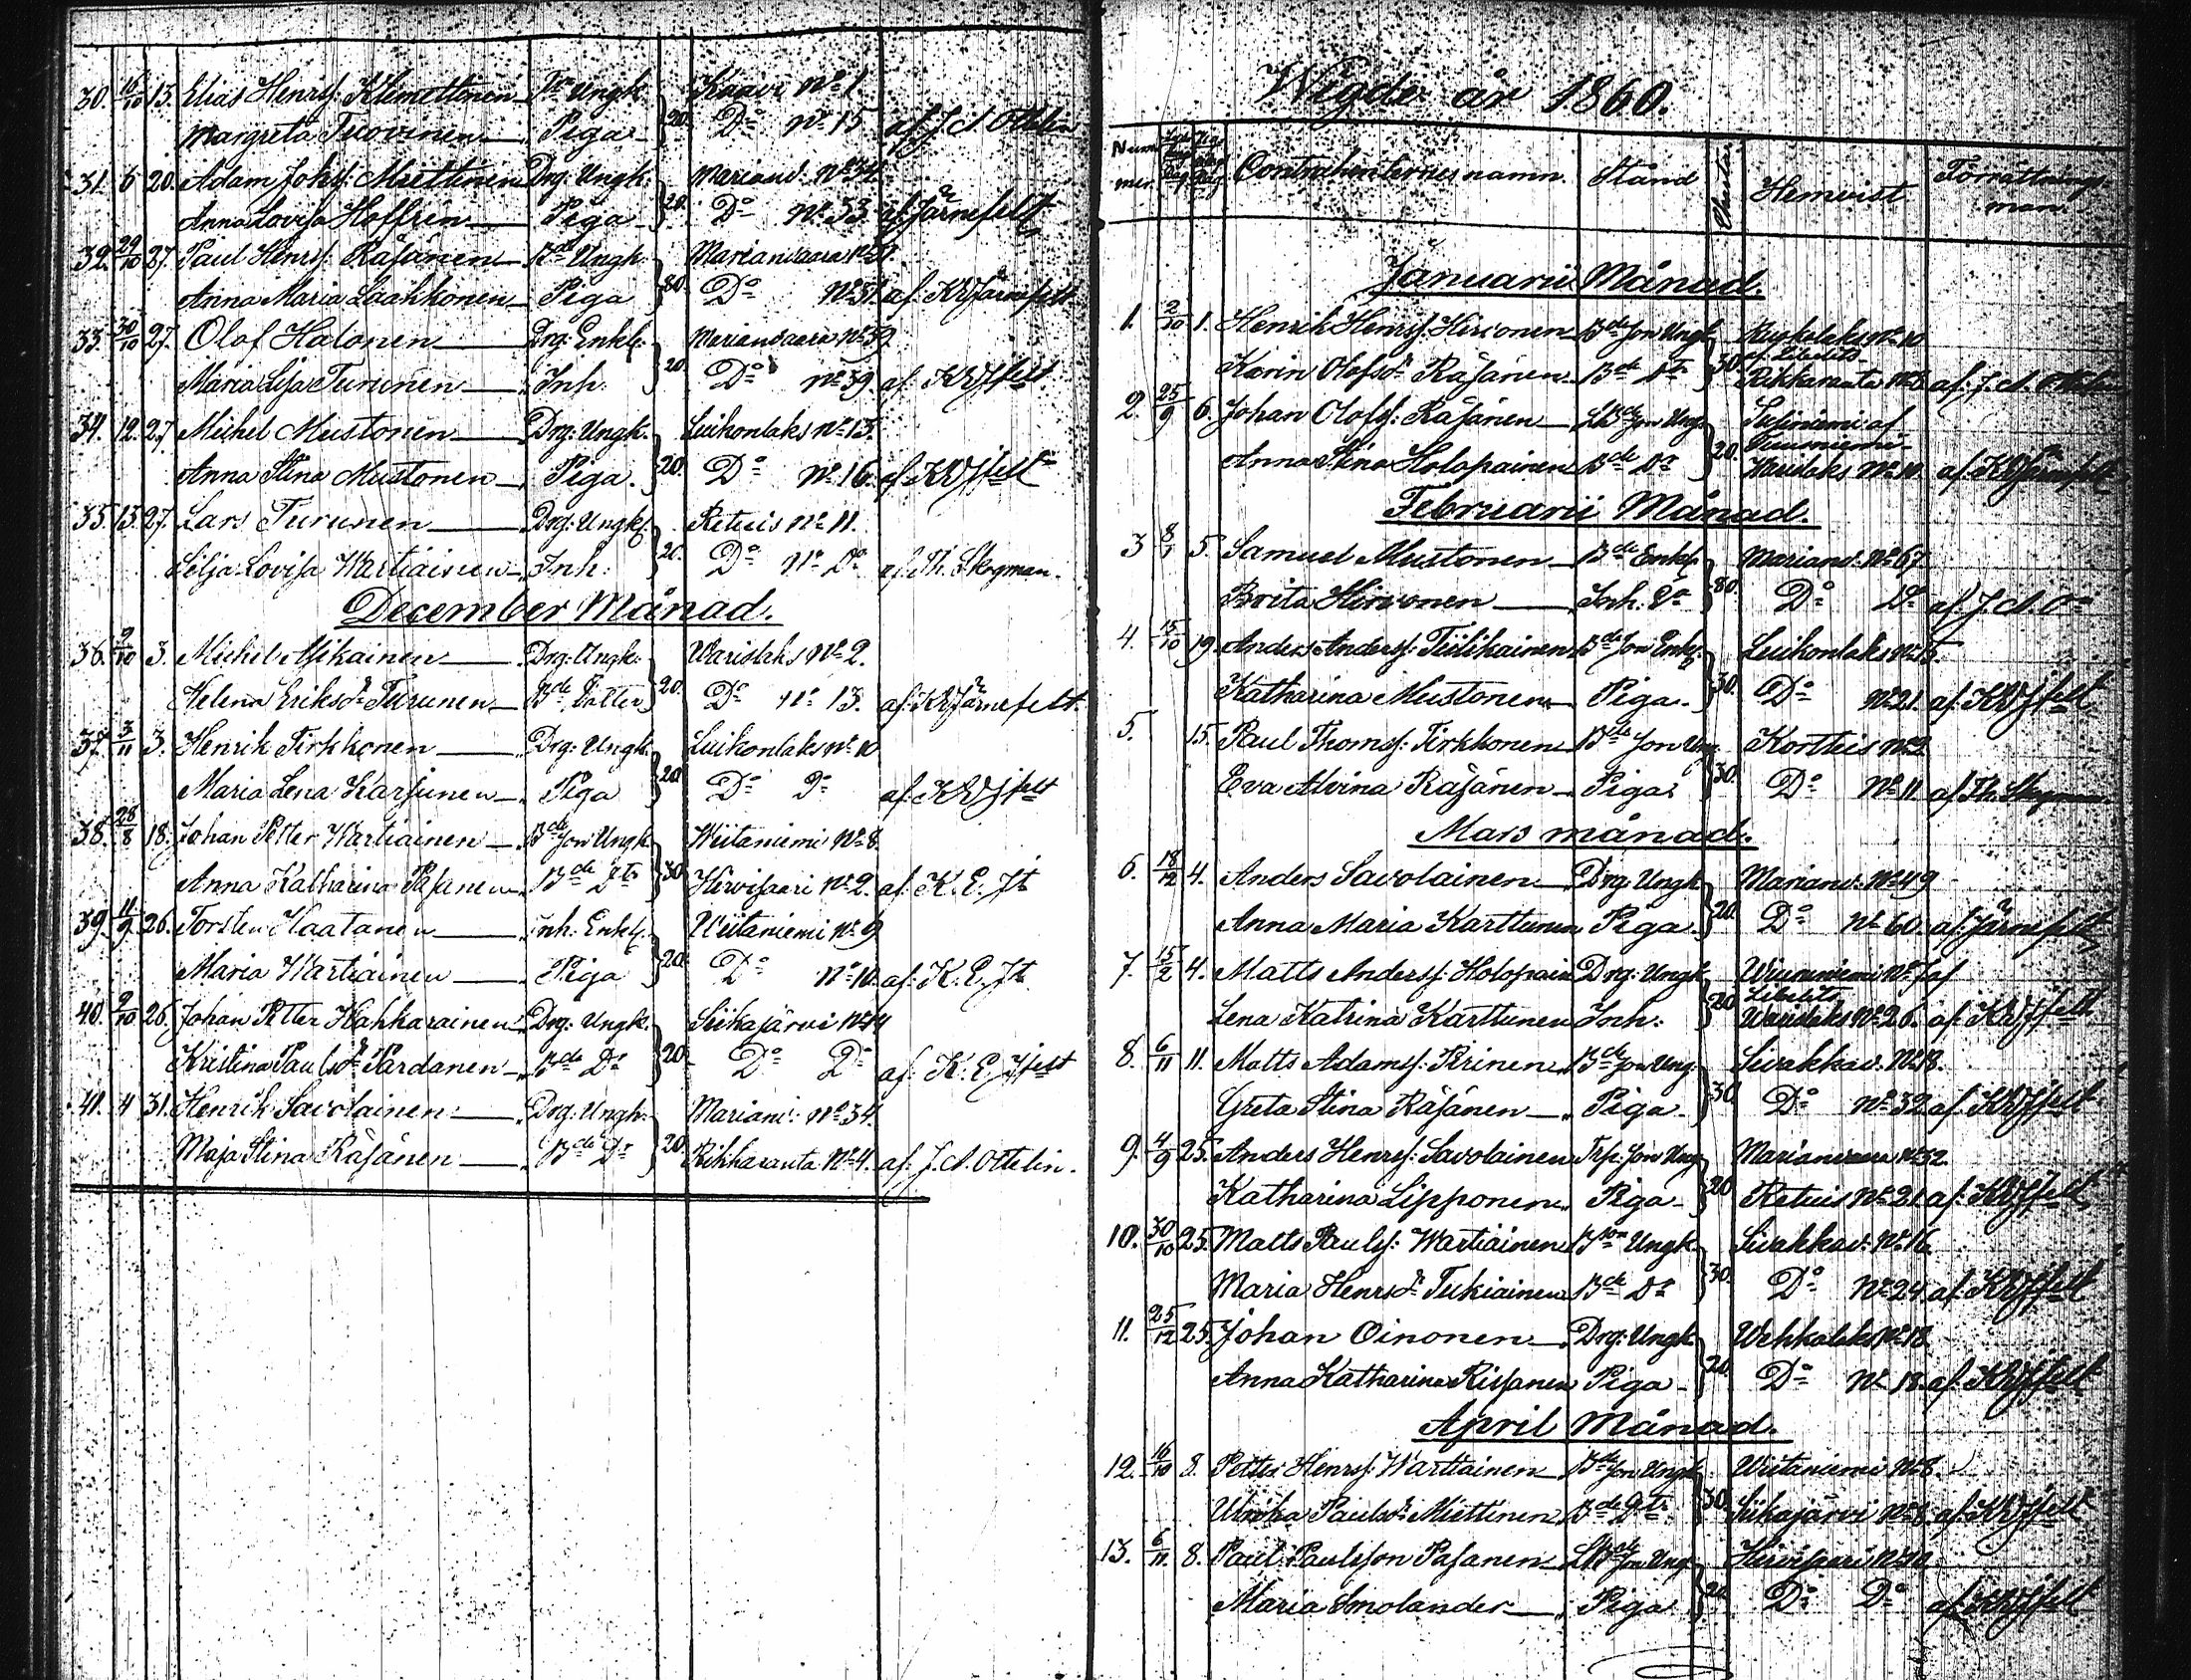 30. 16/10 13. Elias Henrsf: Klemettinen Ungk: Kaavi No 1.
Margreta Tuovinen Piga 20. Do No 15 af J. A. Ottelin
31. 6 20. Adam Johsf: Miettinen Drg: Ungk: Mariand: No 34.
Anna Lovisa Hoffrén Piga 20. Do No 33. af Järnefelt
32. 29/10 27. Paul Henrsf: Räsänen Bde Ungk: Mariandaara No
Anna Maria Laakkonen Piga Do No 31. af: KEJärnefelt
33. 30/10 27. Olof Halonen Drg: Enkl: Mariandaara No 39
Maria Lisa Turunen Inh: 20. Do No 39. af: KEJfelt
34. 12. 27. Michel Mustonen Drg: Ungk: Luikonlaks No 13.
Anna Stina Mustonen Piga. 20. Do No 16. af: KEJfelt
35. 13. 27. Lars Turunen Drg: Ungk: Retuis No 11.
Lovisa Wartiainen Inh: 20. Do No Do af Th. Stegman.
December Månad.
36. 2/10 3. Michel Drg: Ungk: Warislahs No 2.
Helena Eriksdr Turunen Bde Dotter 20. Do No 13. af: KEJärnefelt.
37. 3/11 3. Henrik Pirkkonen Drg: Ungk: Luikonlaks No 10
Maria Lena Karjunen Piga 20. Do Do af: KEJfelt
38. 28/8 18. Johan Petter Wartiainen Bde Son Ungk Wiitaniemi No 8.
Anna Katharina Pasanen Bde Dtr 30 Hirvisaari No 2. af: K. E. Jt
39. 11/9 26. Torsten Kaatanen Inh. Enkl. Wiitaniemi No 9
Maria Wartiainen Piga 20. Do No 10. af: K. E. Jt.
40. 2/10 26. Johan Petter Kahkarainen Drg: Ungk. Siikajärvi No 14
Kristina Paulsdr Pardanen Bde Dr 20. Do Do af: K. E. Jfelt
41. 4 31. Henrik Savolainen Drg: Ungk: Mariand: No 34.
Maja Stina Räsänen Bde Dr 20. Rikkaranta No 4. af: J. A. Ottelin.
Wigde år 1860.
Num mer. Contrahenternes namn. Stånd Hemvist Förrättnings man.
Januarii Månad.
1. 2/10 1. Henrik Henrsf: Hirvonen Bde Son Ungk No 10
af Libelits
Karin Olofsdr Räsänen Bde Dtr 30. Rikkaranta No 8. af: J. A. Ottelin
2. 25/9 6. Johan Olofsf: Räsänen Son Ung. Susiniemi af
Anna Stina Holopainen Bde Dr 20. Warislaks No 10. af: KEJärnefelt
Februarii Månad.
3 8/1 5. Samuel Mustonen Bde Enkl. Mariand: No 67
Brita Hirvonen Inh. Do Do Do af J. A. On
4. 15/10 19. Anders Andersf: Tiilikainen Bde Son Enkl. Luikonlaks No 15.
Katharina Mustonen Piga. 30. Do No 21. af: KEJfelt
5. 15. Paul Thomsf: Pirkkonen Bde Son Ung. Korttis No 2.
Eva Alvina Räsänen Piga 30. Do No 11. af Th. Stegman
Mars månad.
6. 18/12 4. Anders Savolainen Drg: Ungk Mariand: No 49
Anna Maria Karttunen Piga 20. Do No 60. af: Järnefelt
7. 15/2 4. Matts Andersf: Holopain Drg: Ungk No 7 af
Libelits
Lena Katrina Karttunen Inh: 20 Warislaks No 26. af: KEJfelt
8. 6/11 11. Matts Adamsf: Piirinen Bde Son Ung. Sivakkav: No 18.
Greta Stina Räsänen Piga 30. Do No 32 af: KEJfelt
9. 4/9 25. Anders Henrsf: Savolainen Trp: Son Ung Mariandvaara No 52.
Katharina Lipponen Piga 20 Retuis No 21. af: KEJfelt
10. 30/10 25. Matts Paulsf: Wartiainen Bson Ungk Sivakkav: No 16
Maria Henrsdr Tukiainen Bde Dr 30. Do No 24. af: KEJfelt
11. 25/12 25. Johan Oinonen Drg: Ungk Wehkalaks No 18.
Anna Katharina Rissanen Piga 20. Do No 18. af: KEJfelt
April Månad.
12. 16/10 8. Petter Henrsf: Wartiainen Bde Son Ungk Wiitaniemi No 8.
Ulrika Paulsdr Miettinen Bde Dtr 30. Siikajärvi No 8. af: KEJfelt
13. 6/11 8. Paul Paulsson Pasanen Son Ung. Hirvisaari No 10.
Maria Smolander Piga 20. Do Do af: KEJfelt